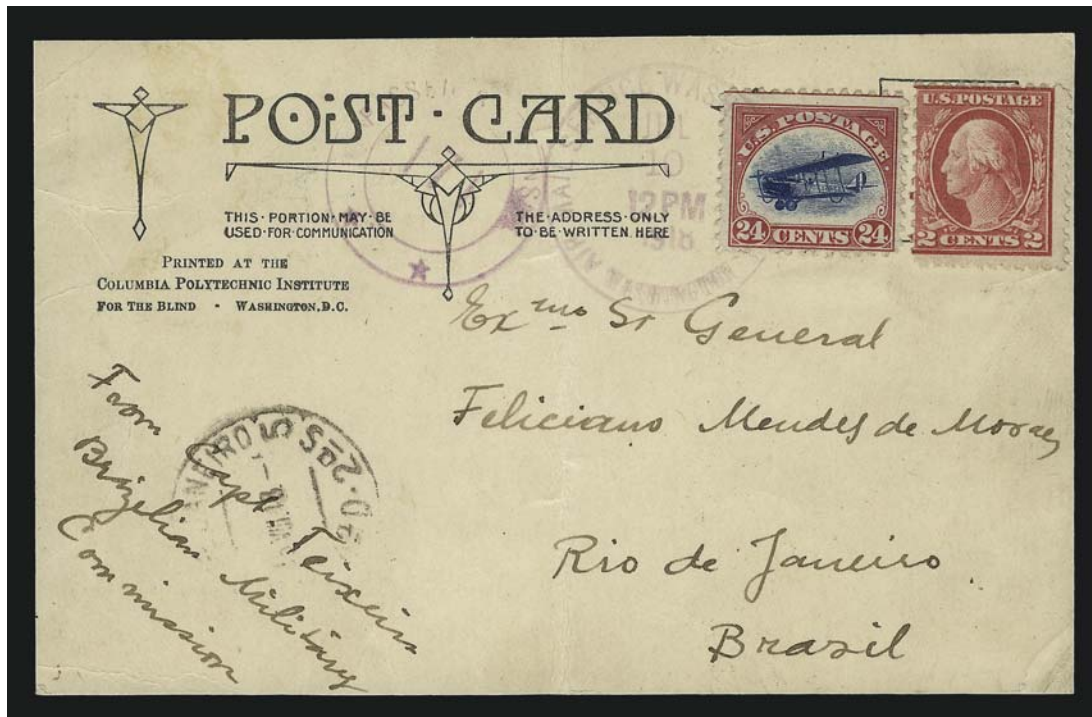 POST · CARD
THIS · PORTION · MAY · BE
USED · FOR · COMMUNICATION
THE · ADDRESS · ONLY
TO · BE · WRITTEN · HERE
PRINTED AT THE
COLUMBIA POLYTECHNIC INSTITUTE
FOR THE BLIND · WASHINGTON, D.C.
U.S. POSTAGE
24 CENTS 24
U.S. POSTAGE
2 CENTS 2
JUL
10
12 PM
1918
WASHINGTON
Ex mo Sr General
Feliciano Mendes de Moraes
Rio de Janeiro
Brasil
From Capt Teixeira
Brizilian Military
Commission